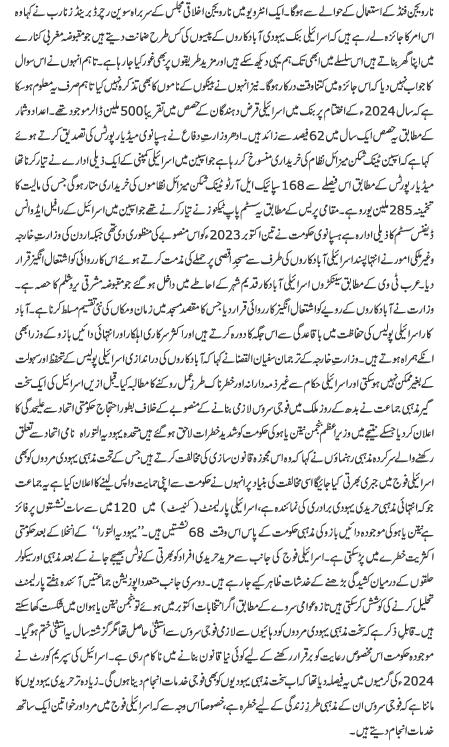 نارویجن فنڈ کے استعمال کے حوالے سے ہوگا۔ ایک انٹرویو میں نارویجن اخلاقی مجلس کے سربراہ سوین رچرڈ برینڈزنارب نے کہا وہ
اس امر کا جائزہ لے رہے ہیں کہ اسرائیلی بنک یہودی آباد کاروں کے پیسوں کی کس طرح ضمانت دیتے ہیں جو مقبوضہ مغربی کنارے
میں اپنا گھر بناتے ہیں اس سلسلے میں ابھی تک ہم یہی دیکھ سکے ہیں اور مزید طریقوں پر بھی غور کیا جا رہا ہے۔ تاہم انہوں نے اس سوال
کا جواب نہیں دیا کہ اس جائزہ میں کتنا وقت درکار ہوگا۔ نیز انہوں نے بینکوں کے ناموں کا بھی تذکرہ نہیں کیا تاہم صرف یہ معلوم ہوسکا
ہے کہ سال 2024ء کے اختتام پر بنک میں اسرائیلی قرض دہندگان کے حصص میں تقریباً 500 ملین ڈالر موجود تھے۔ اعداد و شمار
کے مطابق یہ حصص ایک سال میں 62 فیصد سے زائد ہیں۔ ادھر وزارت دفاع نے ہسپانوی میڈیا رپورٹس کی تصدیق کرتے ہوئے
کہا ہے کہ اسپین ٹینک شکن میزائل نظام کی خریداری منسوخ کر رہا ہے جو اسپین میں اسرائیلی کمپنی کے ایک ذیلی ادارے نے تیار کرنا تھا
میڈیا رپورٹس کے مطابق اس فیصلے سے 168 سپائیک ایل آر ٹو ٹینک شکن میزائل نظاموں کی خریداری متاثر ہوگی جس کی مالیت کا
تخمینہ 285 ملین یورو ہے۔ مقامی پریس کے مطابق یہ سسٹم پاپ ٹیکنوز نے تیار کرنے تھے جو اسپین میں اسرائیل کے رافیل ایڈوانس
ڈیفنس سسٹم کا ذیلی ادارہ ہے ہسپانوی حکومت نے تین اکتوبر 2023 کو اس منصوبے کی منظوری دی تھی جبکہ اردن کی وزارت خارجہ
وغیر ملکی امور نے انتہا پسند اسرائیلی آباد کاروں کی طرف سے مسجد اقصیٰ پر حملے کی مذمت کرتے ہوئے اس کارروائی کو اشتعال انگیز قرار
دیا۔ عرب ٹی وی کے مطابق سینکڑوں اسرائیلی آباد کار قدیم شہر کے احاطے میں داخل ہوگئے جو مقبوضہ مشرقی یروشلم کا حصہ ہے۔
وزارت نے آباد کاروں کے رویے کو اشتعال انگیز کارروائی قرار دیا جس کا مقصد مسجد میں زمان و مکاں کی نئی تقسیم مسلط کرنا ہے۔ آباد
کار اسرائیلی پولیس کی حفاظت میں باقاعدگی سے اس جگہ کا دورہ کرتے ہیں اور اکثر سرکاری اہلکار اور انتہائی دائیں بازو کے وزرا بھی
انکے ہمراہ ہوتے ہیں۔ وزارت خارجہ کے ترجمان سفیان القضاۃ نے کہا کہ آباد کاروں کی در اندازی اسرائیلی پولیس کے تحفظ اور سہولت
کے بغیر ممکن نہیں ہوسکتی اور اسرائیلی حکام سے غیر ذمہ دارانہ اور خطرناک طرزِ عمل روکنے کا مطالبہ کیا۔ قبل ازیں اسرائیل کی ایک سخت
گیر مذہبی جماعت نے بدھ کے روز ملک میں فوجی سروس لازمی بنانے کے منصوبے کے خلاف بطور احتجاج حکومتی اتحاد سے علیحدگی کا
اعلان کر دیا جسکے نتیجے میں وزیراعظم بنجمن نیتن یاہو کی حکومت کو شدید خطرات لاحق ہوگئے ہیں متحدہ یہودیہ التوراۃ نامی اتحاد سے تعلق
رکھنے والے سرکردہ مذہبی رہنماؤں نے کہا کہ وہ اس مجوزہ قانون سازی کی مخالفت کرتے ہیں جس کے تحت مذہبی یہودی مردوں کو بھی
فوج میں جبری بھرتی کیا جائیگا اسی مخالفت کی بنیاد پر انہوں نے حکومت سے اپنی حمایت واپس لینے کا اعلان کیا ہے یہ جماعت
جو کہ انتہائی مذہبی حریدی یہودی برادری کی نمائندہ ہے، اسرائیلی پارلیمنٹ (کنیسٹ) میں 120 میں سے سات نشستوں پر فائز
ہے نیتن یاہو کی موجودہ دائیں بازو کی مذہبی حکومت کے پاس اس وقت 68 نشستیں ہیں۔ "یہودیہ التوراۃ" کے انخلا کے بعد حکومتی
اکثریت خطرے میں پڑسکتی ہے۔ اسرائیلی فوج کی جانب سے مزید حریدی افراد کو بھرتی کے نوٹس بھیجے جانے کے بعد مذہبی اور سیکولر
حلقوں کے درمیان کشیدگی بڑھنے کے خدشات ظاہر کیے جا رہے ہیں۔ دوسری جانب متعدد اپوزیشن جماعتیں آئندہ ہفتے پارلیمنٹ
تحلیل کرنے کی کوشش کرسکتی ہیں تازہ عوامی سروے کے مطابق اگر انتخابات اکتوبر میں ہوئے تو بنجمن نیتن یاہو ان میں شکست کھا سکتے
ہیں۔ قابلِ ذکر ہے کہ سخت مذہبی یہودی مردوں کو دہائیوں سے لازمی فوجی سروس سے استثنیٰ حاصل تھا مگر گزشتہ سال یہ استثنیٰ ختم ہوگیا۔
موجودہ حکومت اس مخصوص رعایت کو برقرار رکھنے کے لیے کوئی نیا قانون بنانے میں ناکام رہی ہے۔ اسرائیل کی سپریم کورٹ نے
2024ء کی گرمیوں میں یہ فیصلہ دیا تھا کہ اب سخت مذہبی یہودیوں کو بھی فوجی خدمات انجام دینا ہوں گی۔ زیادہ تر حریدی یہودیوں کا
ماننا ہے کہ فوجی سروس ان کے مذہبی طرزِ زندگی کے لیے خطرہ ہے، خصوصاً اس وجہ سے کہ اسرائیلی فوج میں مرد اور خواتین ایک ساتھ
خدمات انجام دیتے ہیں۔